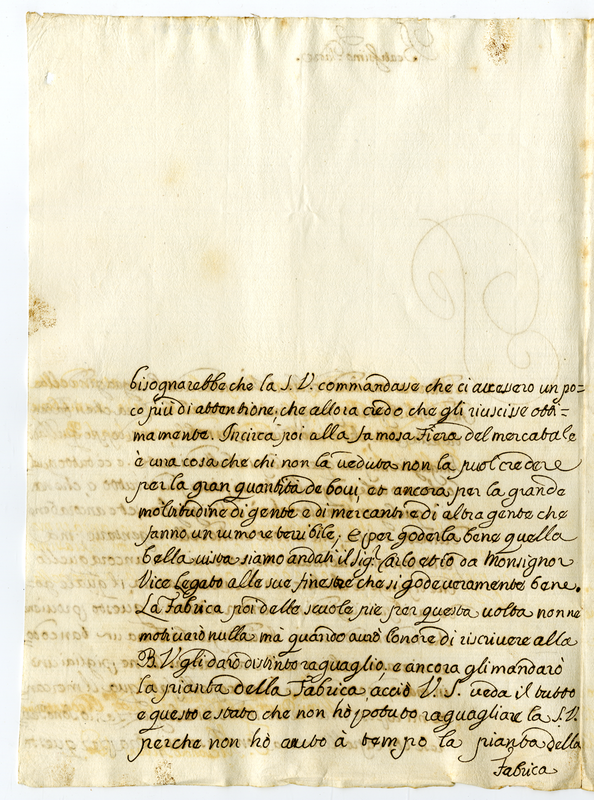 bisognarebbe che la S. V. commandasse che ci avessero un po=
co più di attentione, che allora credo che gli riuscisse otti=
mamente. Incirca poi alla famosa Fiera del mercatale
è una cosa che chi non la veduta non la puol credere
per la gran quantità de bovi, et ancora per la grande
moltitudine di gente e di mercanti e di altra gente che
fanno un rumore terribile; e per goderla bene quella
bella vista siamo andati il Sigr. Carlo et io da Monsignor
Vice Legato alle sue finestre che si gode veramente bene.
La Fabrica poi delle scuole pie per questa volta non ne
motiviarò nulla mà quando averò l'onore di riscrivere alla
B. V. gli darò distinto raguaglio, e ancora gli mandarò
la pianta della Fabrica acciò V. S. veda il tutto
e questo e stato che non hò potuto raguagliare la S. V.
perche non hò auuto à tempo la pianta della
Fabrica